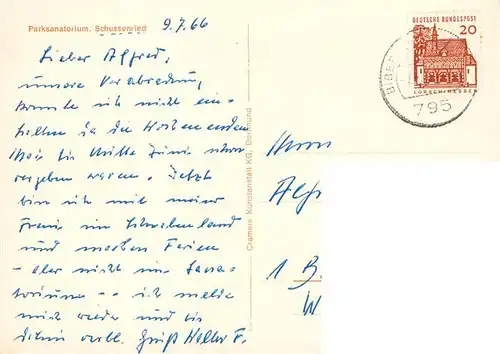 Parksanatorium, Schussenried
9.7.66
Lieber Alfred,
unsere Verabredung
konnte ich nicht ein-
halten da die Wochenenden
Mai bis Mitte Juni schon
vergeben waren. Jetzt
bin ich mit meiner
Frau im Schwabenland
und machen Ferien
- aber nicht im Sana-
torium - - ich melde
mich wieder und bis
dahin verbl. Gruß
Cramers Kunstanstalt KG, Dortmund
DEUTSCHE BUNDESPOST
20
LORSCH/HESSEN
BIBE
795
Herrn
Alf
1 B
W